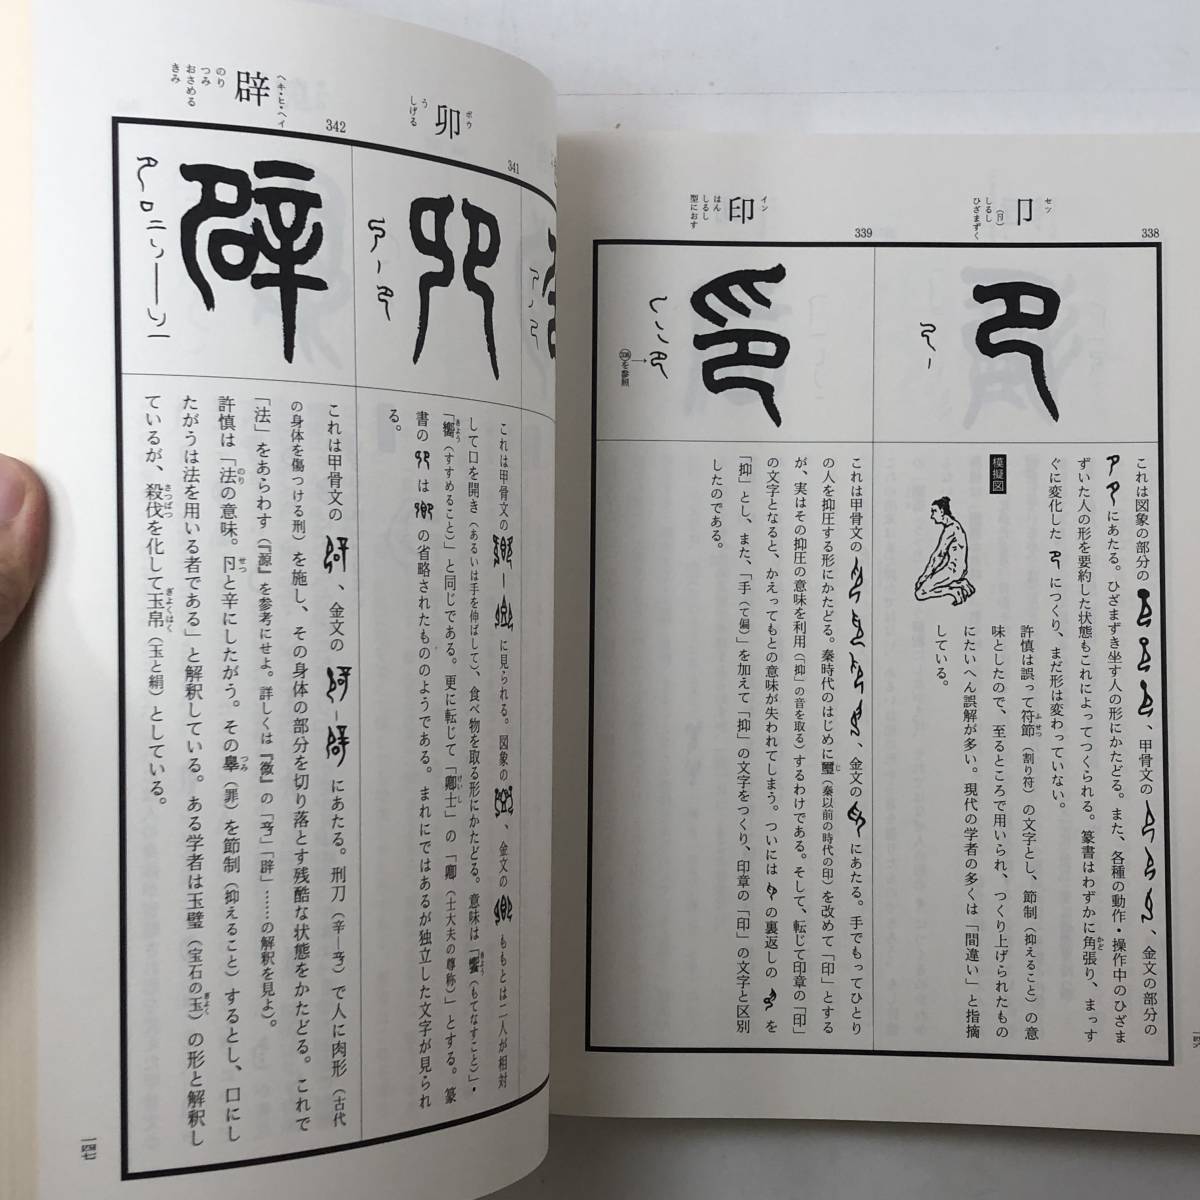 338
卩
セツ
(㔾)
しるし
ひざまずく
これは図象の部分の
、甲骨文の
、金文の部分の
にあたる。ひざまずき坐す人の形にかたどる。また、各種の動作・操作中のひざま
ずいた人の形を要約した状態もこれによってつくられる。篆書はわずかに角張り、まっす
かど
ぐに変化した
につくり、まだ形は変わっていない。
模擬図
許慎は誤って符節（割り符）の文字とし、節制（抑えること）の意
ふせつ
味としたので、至るところで用いられ、つくり上げられたもの
にたいへん誤解が多い。現代の学者の多くは「間違い」と指摘
している。
339
印
イン
はん
しるし
型におす
338を参照
これは甲骨文の
、金文の
にあたる。手でもってひとり
の人を抑圧する形にかたどる。秦時代のはじめに璽（秦以前の時代の印）を改めて「印」とする
じ
が、実はその抑圧の意味を利用（「抑」の音を取る）するわけである。そして、転じて印章の「印」
の文字となると、かえってもとの意味が失われてしまう。ついには
の裏返しの
を
「抑」とし、また、「手（て偏）」を加えて「抑」の文字をつくり、印章の「印」の文字と区別
したのである。
341
卯
ボウ
う
しげる
これは甲骨文の
に見られる。図象の
、金文の
ももとは二人が相対
して口を開き（あるいは手を伸ばして）、食べ物を取る形にかたどる。意味は「饗（もてなすこと）」・
きょう
「嚮（すすめること）」と同じである。更に転じて「卿士」の「卿（士大夫の尊称）」とする。篆
きょう
けいし
書の
は
の省略されたもののようである。まれにではあるが独立した文字が見られ
る。
342
辟
ヘキ・ヒ・ヘイ
のり
つみ
おさめる
きみ
これは甲骨文の
、金文の
にあたる。刑刀（辛—䇂）で人に肉形（古代
の身体を傷つける刑）を施し、その身体の部分を切り落とす残酷な状態をかたどる。これで
「法」をあらわす（『源』を参考にせよ。詳しくは『徴』の「䇂」「辟」……の解釈を見よ）。
許慎は「法の意味。卩と辛にしたがう。その辠（罪）を節制（抑えること）するとし、口にし
のり
せつ
つみ
たがうは法を用いる者である」と解釈している。ある学者は玉璧（宝石の玉）の形と解釈し
ぎょく
ているが、殺伐を化して玉帛（玉と絹）としている。
さつばつ
ぎょくはく
一四七